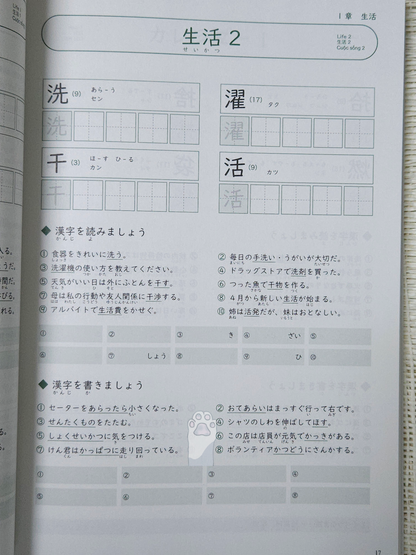 1章 生活
生活 2
せいかつ
Life 2
生活 2
Cuộc sống 2
洗 (9) あら-う
セン
濯 (17) タク
洗
濯
干 (3) ほ-す ひ-る
カン
活 (9) カツ
干
活
◆ 漢字を読みましょう
① 食器をきれいに洗う。
② 毎日の手洗い・うがいが大切だ。
③ 洗濯機の使い方を教えてください。
④ ドラッグストアで洗剤を買った。
⑤ 天気がいい日は外にふとんを干す。
⑥ つった魚で干物を作る。
⑦ 母は私の行動や友人関係に干渉する。
⑧ 4月から新しい生活が始まる。
⑨ アルバイトで生活費をかせぐ。
⑩ 姉は活発だが、妹はおとなしい。
① ② ③ き ④ ざい ⑤
⑥ ⑦ しょう ⑧ ⑨ ひ ⑩
◆ 漢字を書きましょう
① セーターをあらったら小さくなった。
② おてあらいはまっすぐ行って右です。
③ せんたくものをたたむ。
④ シャツのしわを伸ばしてほす。
⑤ しょくせいかつに気をつける。
⑥ この店は店員が元気でかっきがある。
⑦ けん君はかっぱつに走り回っている。
⑧ ボランティアかつどうにさんかする。
① ② ③ ④
⑤ ⑥ ⑦ ⑧
17